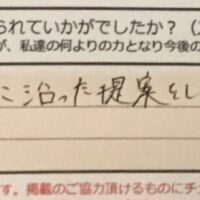 られていかがでしたか？（
が、私達の何よりの力となり今後の
に沿った提案をし
す。掲載のご協力頂けるものにチ